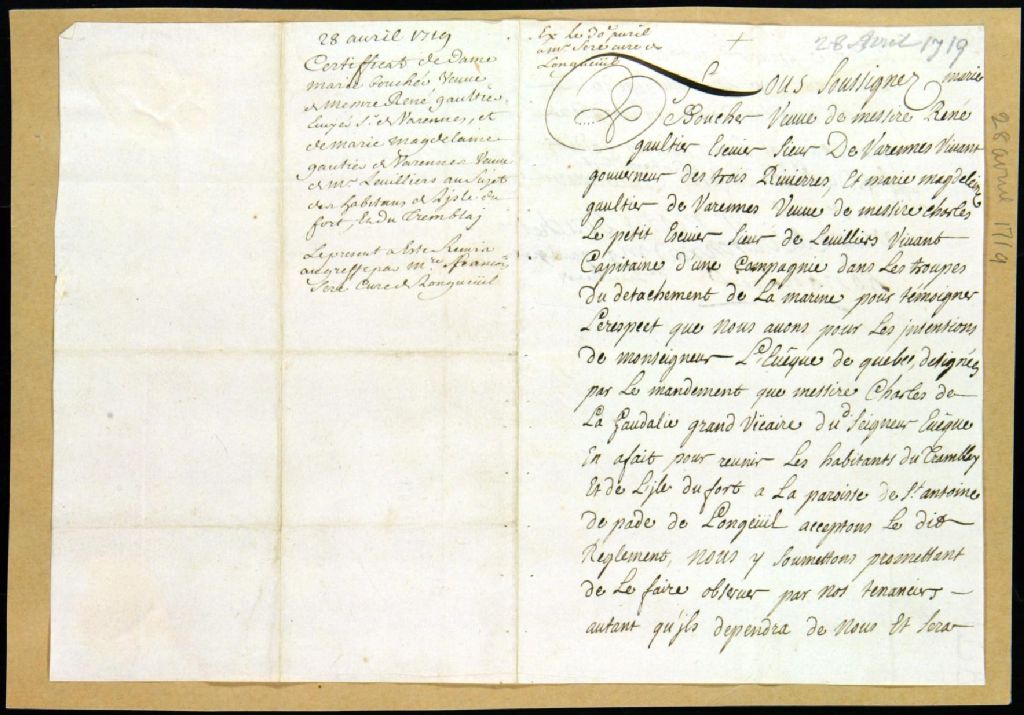 28 avril 1719
Certifficat de dame
marie bouché Veuve
de Messire René gaultié,
Ecuyé Sr. de Varennes, et
de marie magdelaine
gautié de Varennes Veuve
de mr. Leuilliers au Sujet
des habitans de Lisle du
fort, & du Tremblaj
Le present a Este Remis
au greffe par mre. francois
Seré Curé de Longueuil
Ex le 30e. avril
a mr. Seré curé de
Longueuil
28 Avril 1719
Nous Soussignez marie
Boucher Veuve de messire René
gaultier Escuier Sieur De Varennes Vivant
gouverneur des trois Rivierres, Et marie magdeleine
gaultier de Varennes Veuve de messire charles
Le petit Escuier Sieur de Leuilliers Vivant
Capitaine d'une Compagnie dans Les troupes
Du detachement de La marine pour témoigner
Lerespect que Nous auons pour Les jntentions
de monseigneur L'Euêque de quebec, designées
par Le mandement que messire Charles de
La Gaudalie grand Vicaire dud. Seigneur Euêque
En afait pour reunir Les habitants du Trambley
Et de L'jle du fort a La paroisse de St. antoine
de pade de Longeüil acceptons Le dit
Reglement, Nous y Soumettons promettant
de Le faire observer par Nos tenanciers
autant qu'jls dependra de Nous Et Sera
28 avril 1719